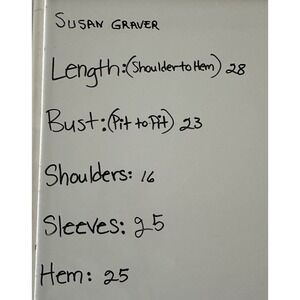 SUSAN GRAVER
Length:(Shoulder to Hem) 28
Bust:(Pit to Pit) 23
Shoulders: 16
Sleeves: 25
Hem: 25